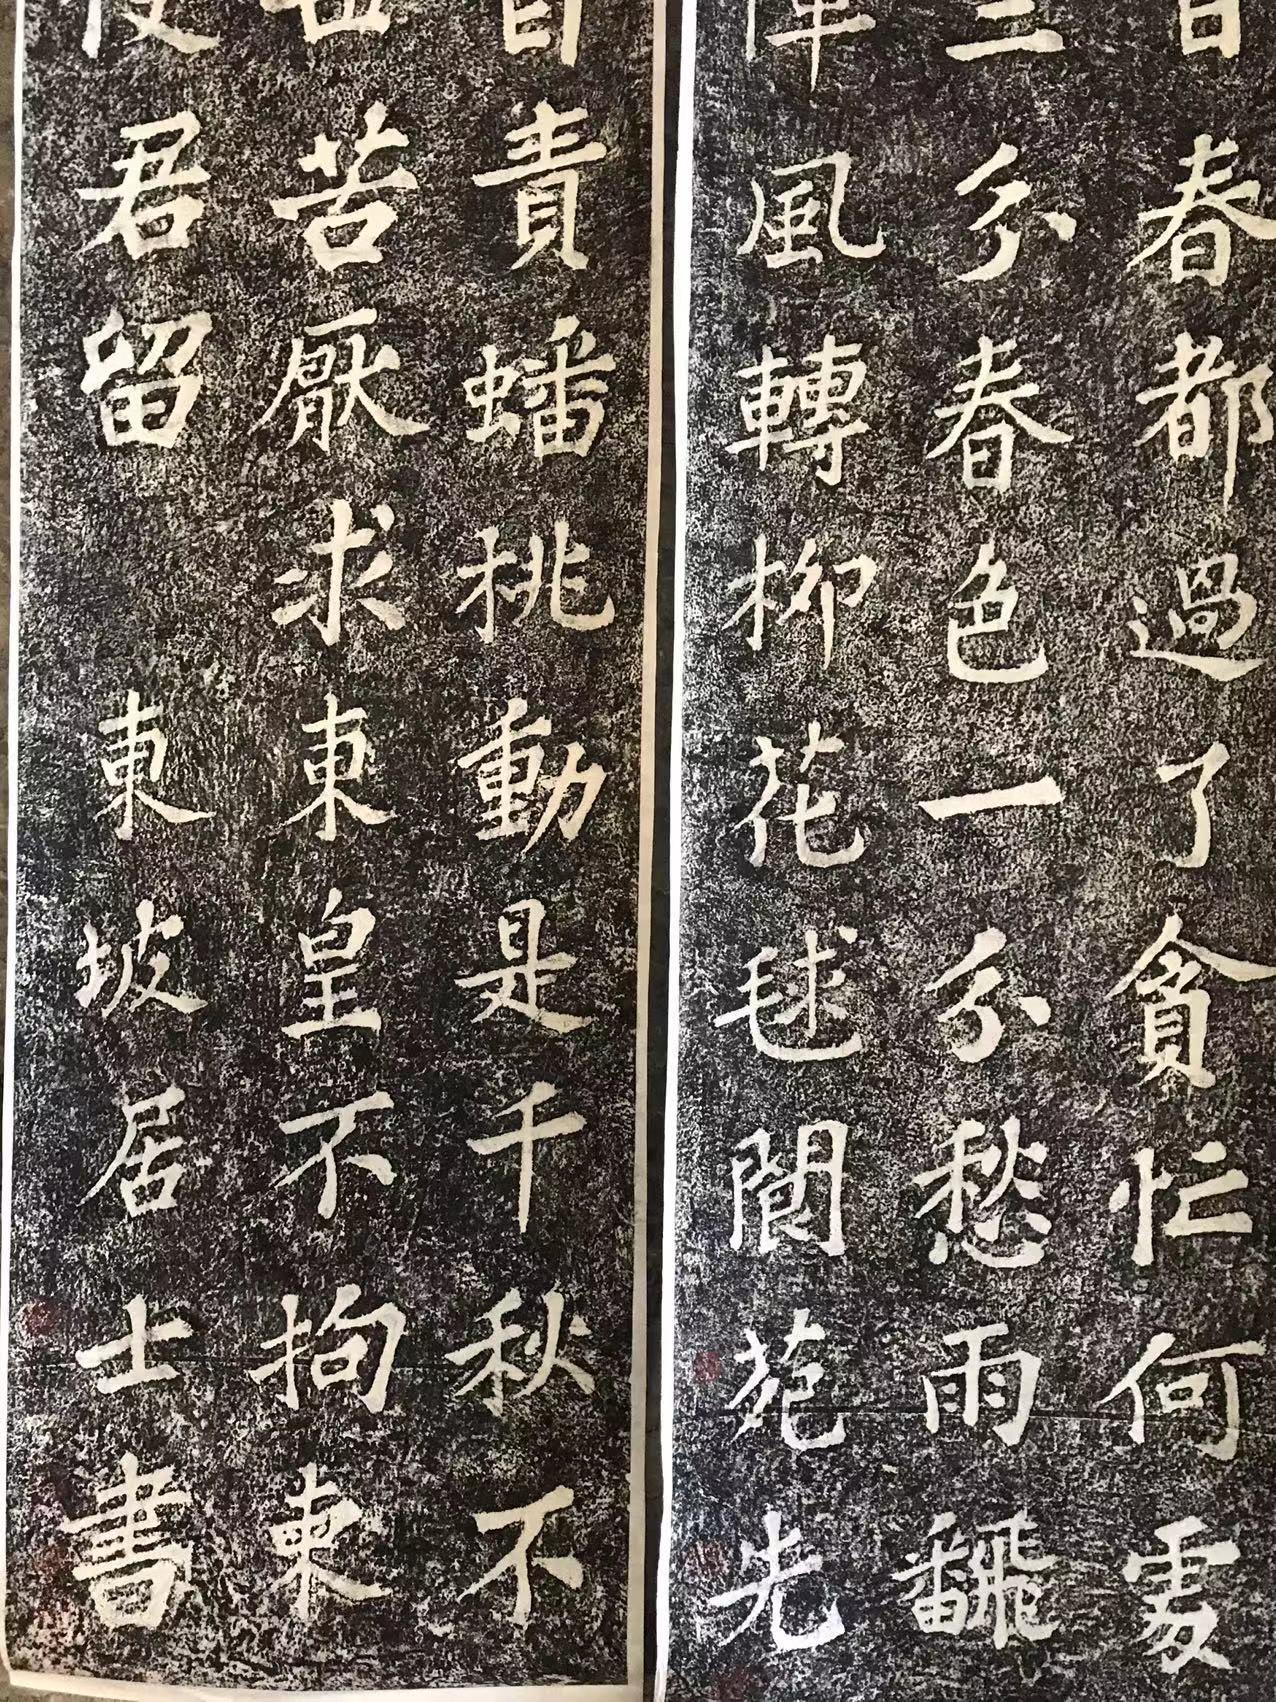 日春都過了貪忙何處
三分春色一分愁雨飜
陣風轉柳花毬閬苑先
自責蟠桃動是千秋不
世苦厭求東皇不拘束
使君留 東坡居士書